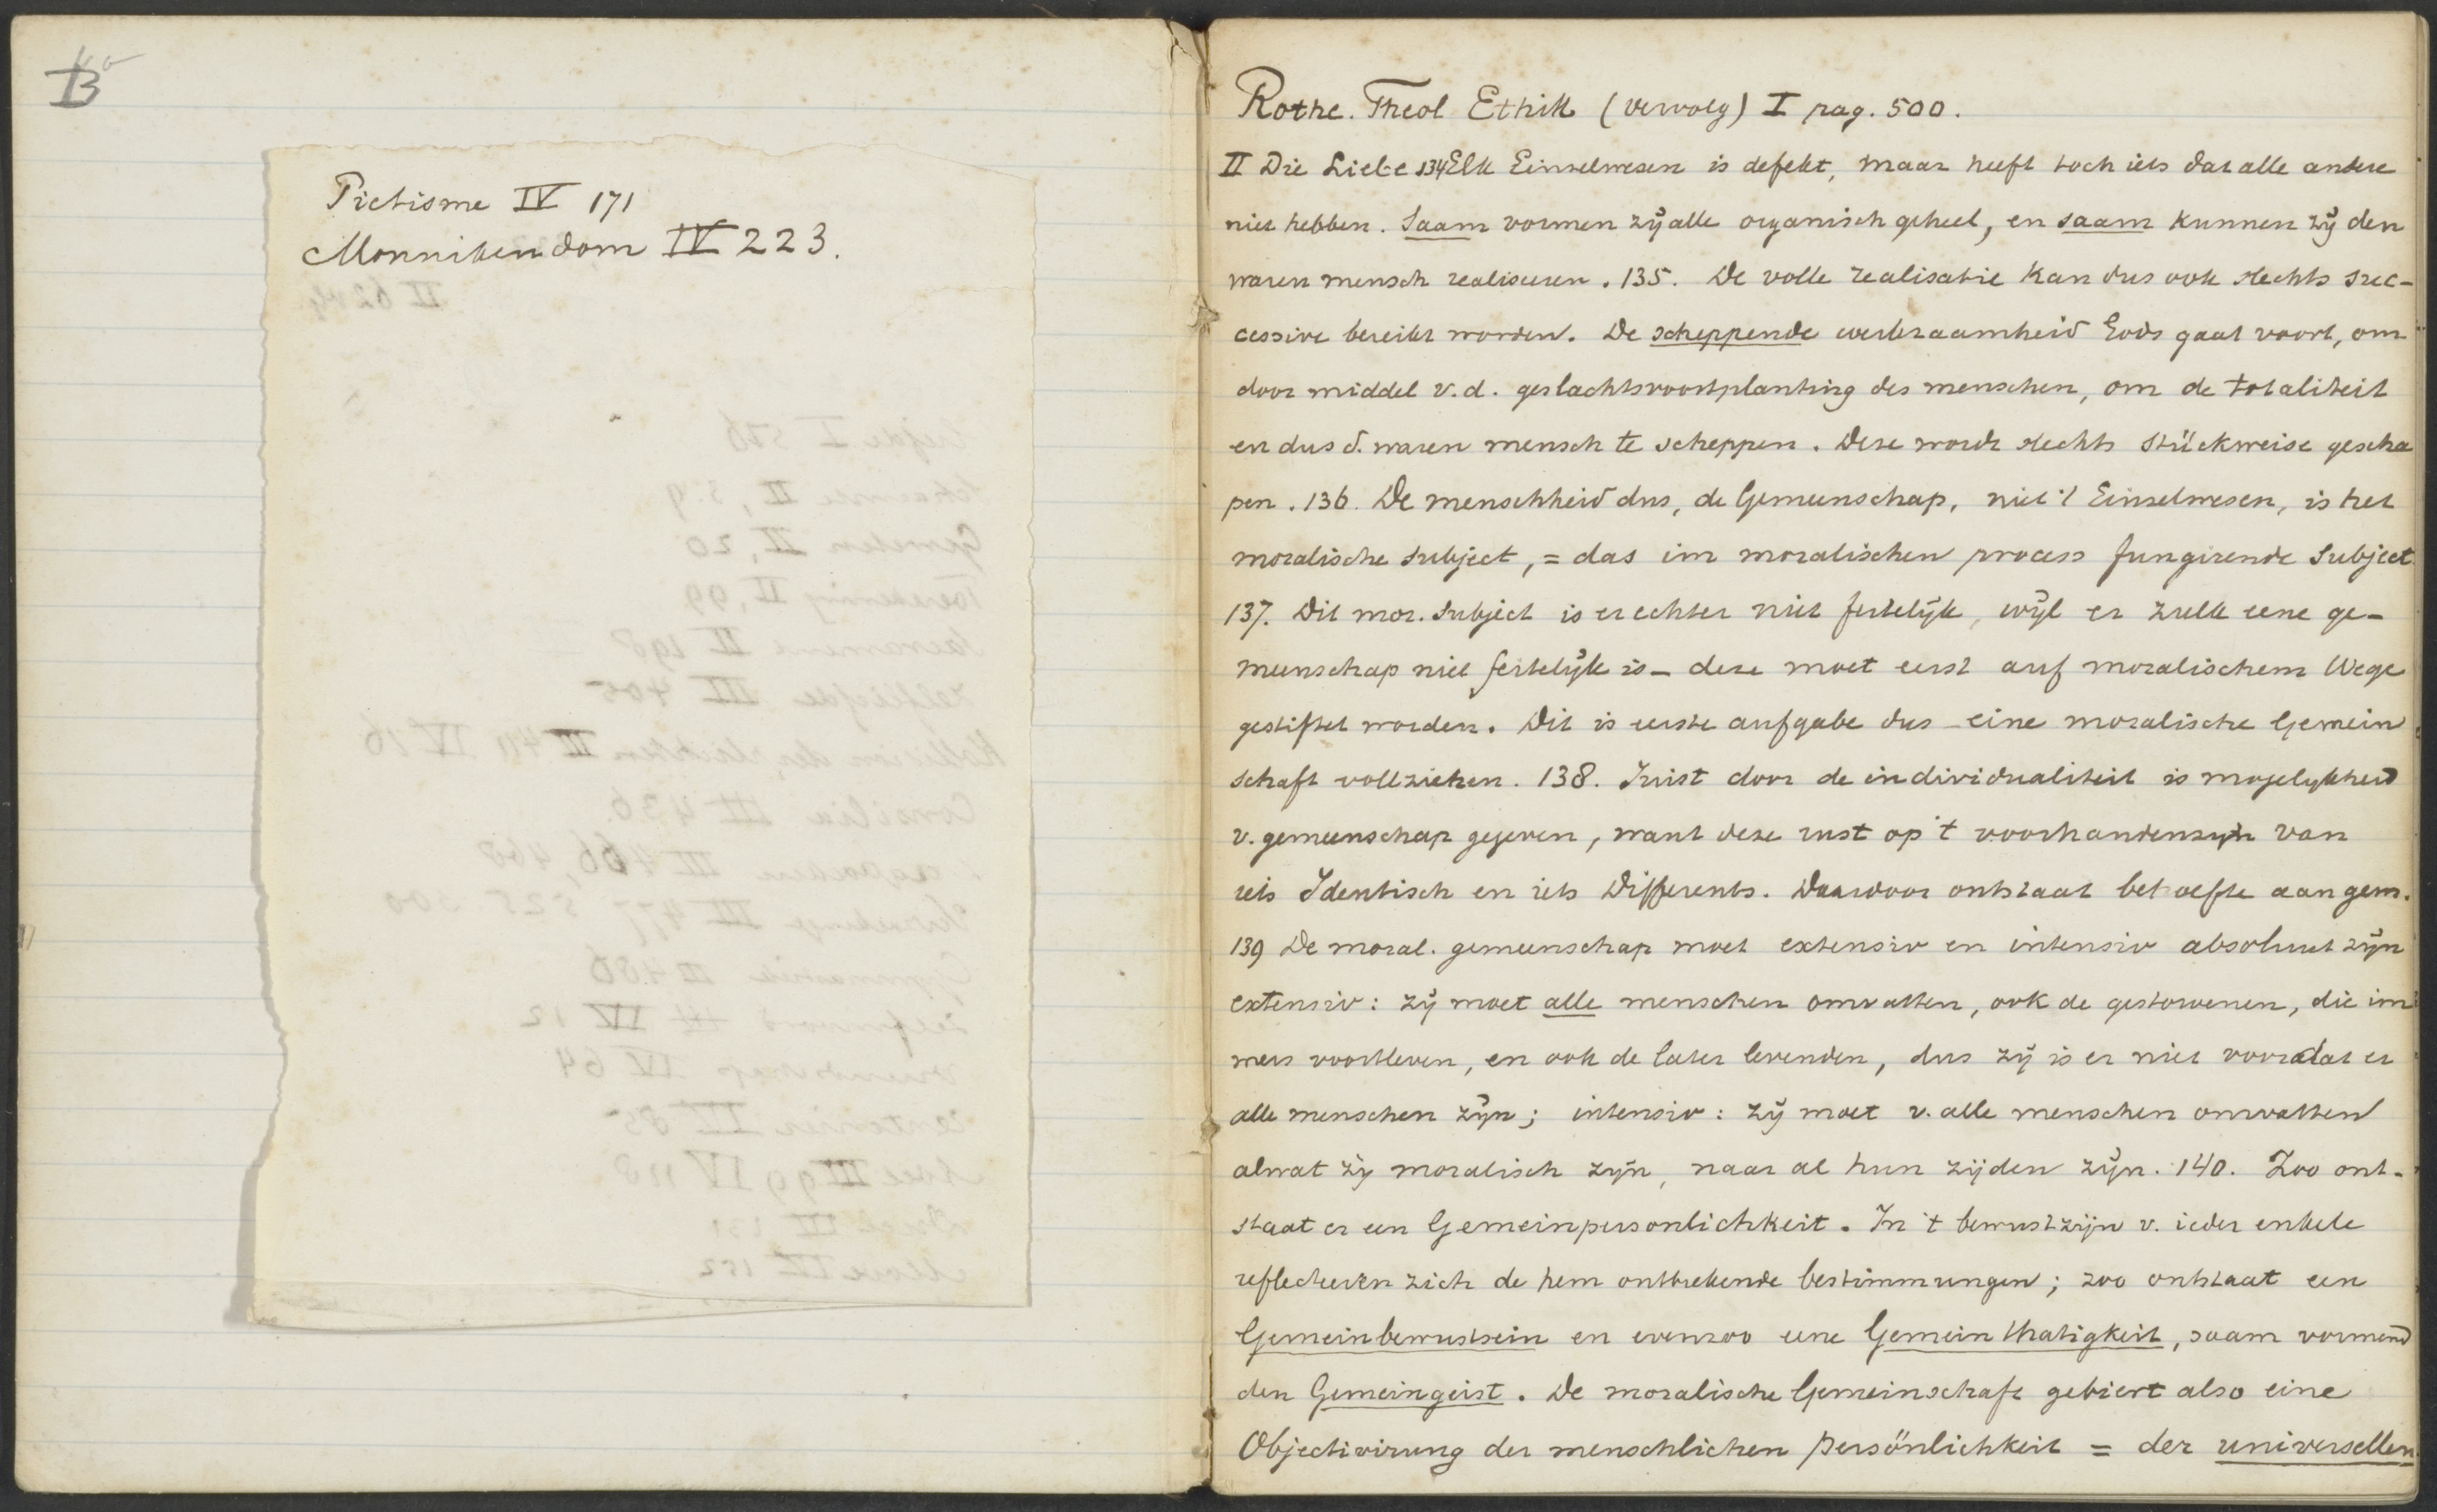 B
Pietisme IV 171
Monnikendom IV 223.
Rothe. Theol Ethik (vervolg) I pag. 500.
II Die Liebe 134 Elk Einzelwesen is defekt, maar heeft toch iets dat alle andere
niet hebben. Saam vormen zij alle organisch geheel, en saam kunnen zij den
waren mensch realiseeren. 135. De volle realisatie kan dus ook slechts suc-
cessive bereikt worden. De scheppende werkzaamheid Gods gaat voort, om
door middel v.d. geslachtsvoortplanting des menschen, om de totaliteit
en dus d. waren mensch te scheppen. Deze wordt slechts stückweise gescha
pen. 136. De menschheid dus, de Gemeenschap, niet 't Einzelwesen, is het
moralische subject, = das im moralischen process fungirende Subject
137. Dit mor. subject is er echter niet feitelijk, wijl er zulk eene ge-
meenschap niet feitelijk is - deze moet eerst auf moralischem Wege
gestiftet worden. Dit is eerste aufgabe dus - eine moralische Gemein
schaft vollziehen. 138. Juist door de individualiteit is mogelykheid
v. gemeenschap gegeven, want deze rust op 't voorhandenzyn van
iets Identisch en iets Differents. Daardoor ontstaat behoefte aan gem.
139 De moral. gemeenschap moet extensiv en intensiv absoluut zijn
extensiv: zij moet alle menschen omvatten, ook de gestorvenen, die im
mers voortleven, en ook de later levenden, dus zij is er niet voordat er
alle menschen zijn; intensiv: zij moet v. alle menschen omvatten
alwat zij moralisch zijn, naar al hun zijden zijn. 140. Zoo ont-
staat er een Gemeinpersonlichkeit. In 't bewustzijn v. ieder enkele
reflecteeren zich de hem ontbrekende bestimmungen; zoo ontstaat een
Gemeinbewustsein en evenzoo eene Gemeinthatigkeit, saam vormend
den Gemeingeist. De moralische Gemeinschaft gebiert also eine
Objectivirung der menschlichen Persönlichkeit = der universellen